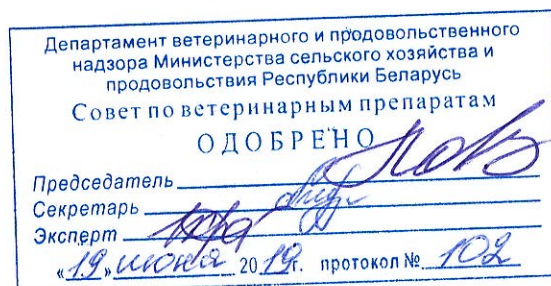 Департамент ветеринарного и продовольственного
надзора Министерства сельского хозяйства и
продовольствия Республики Беларусь
Совет по ветеринарным препаратам
ОДОБРЕНО
Председатель
Секретарь
Эксперт
«19» июня 2019г. протокол № 102